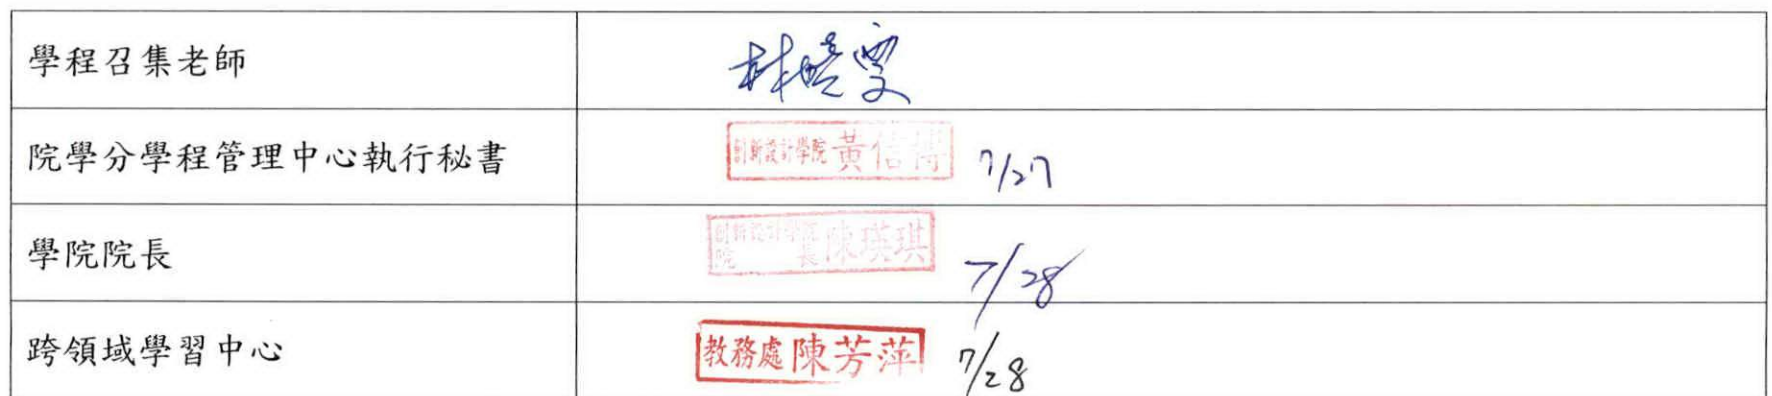 學程召集老師
林曉雯
院學分學程管理中心執行秘書
創新設計學院 黃信博 7/27
學院院長
創新設計學院院長 陳瑛琪 7/28
跨領域學習中心
教務處 陳芳萍 7/28